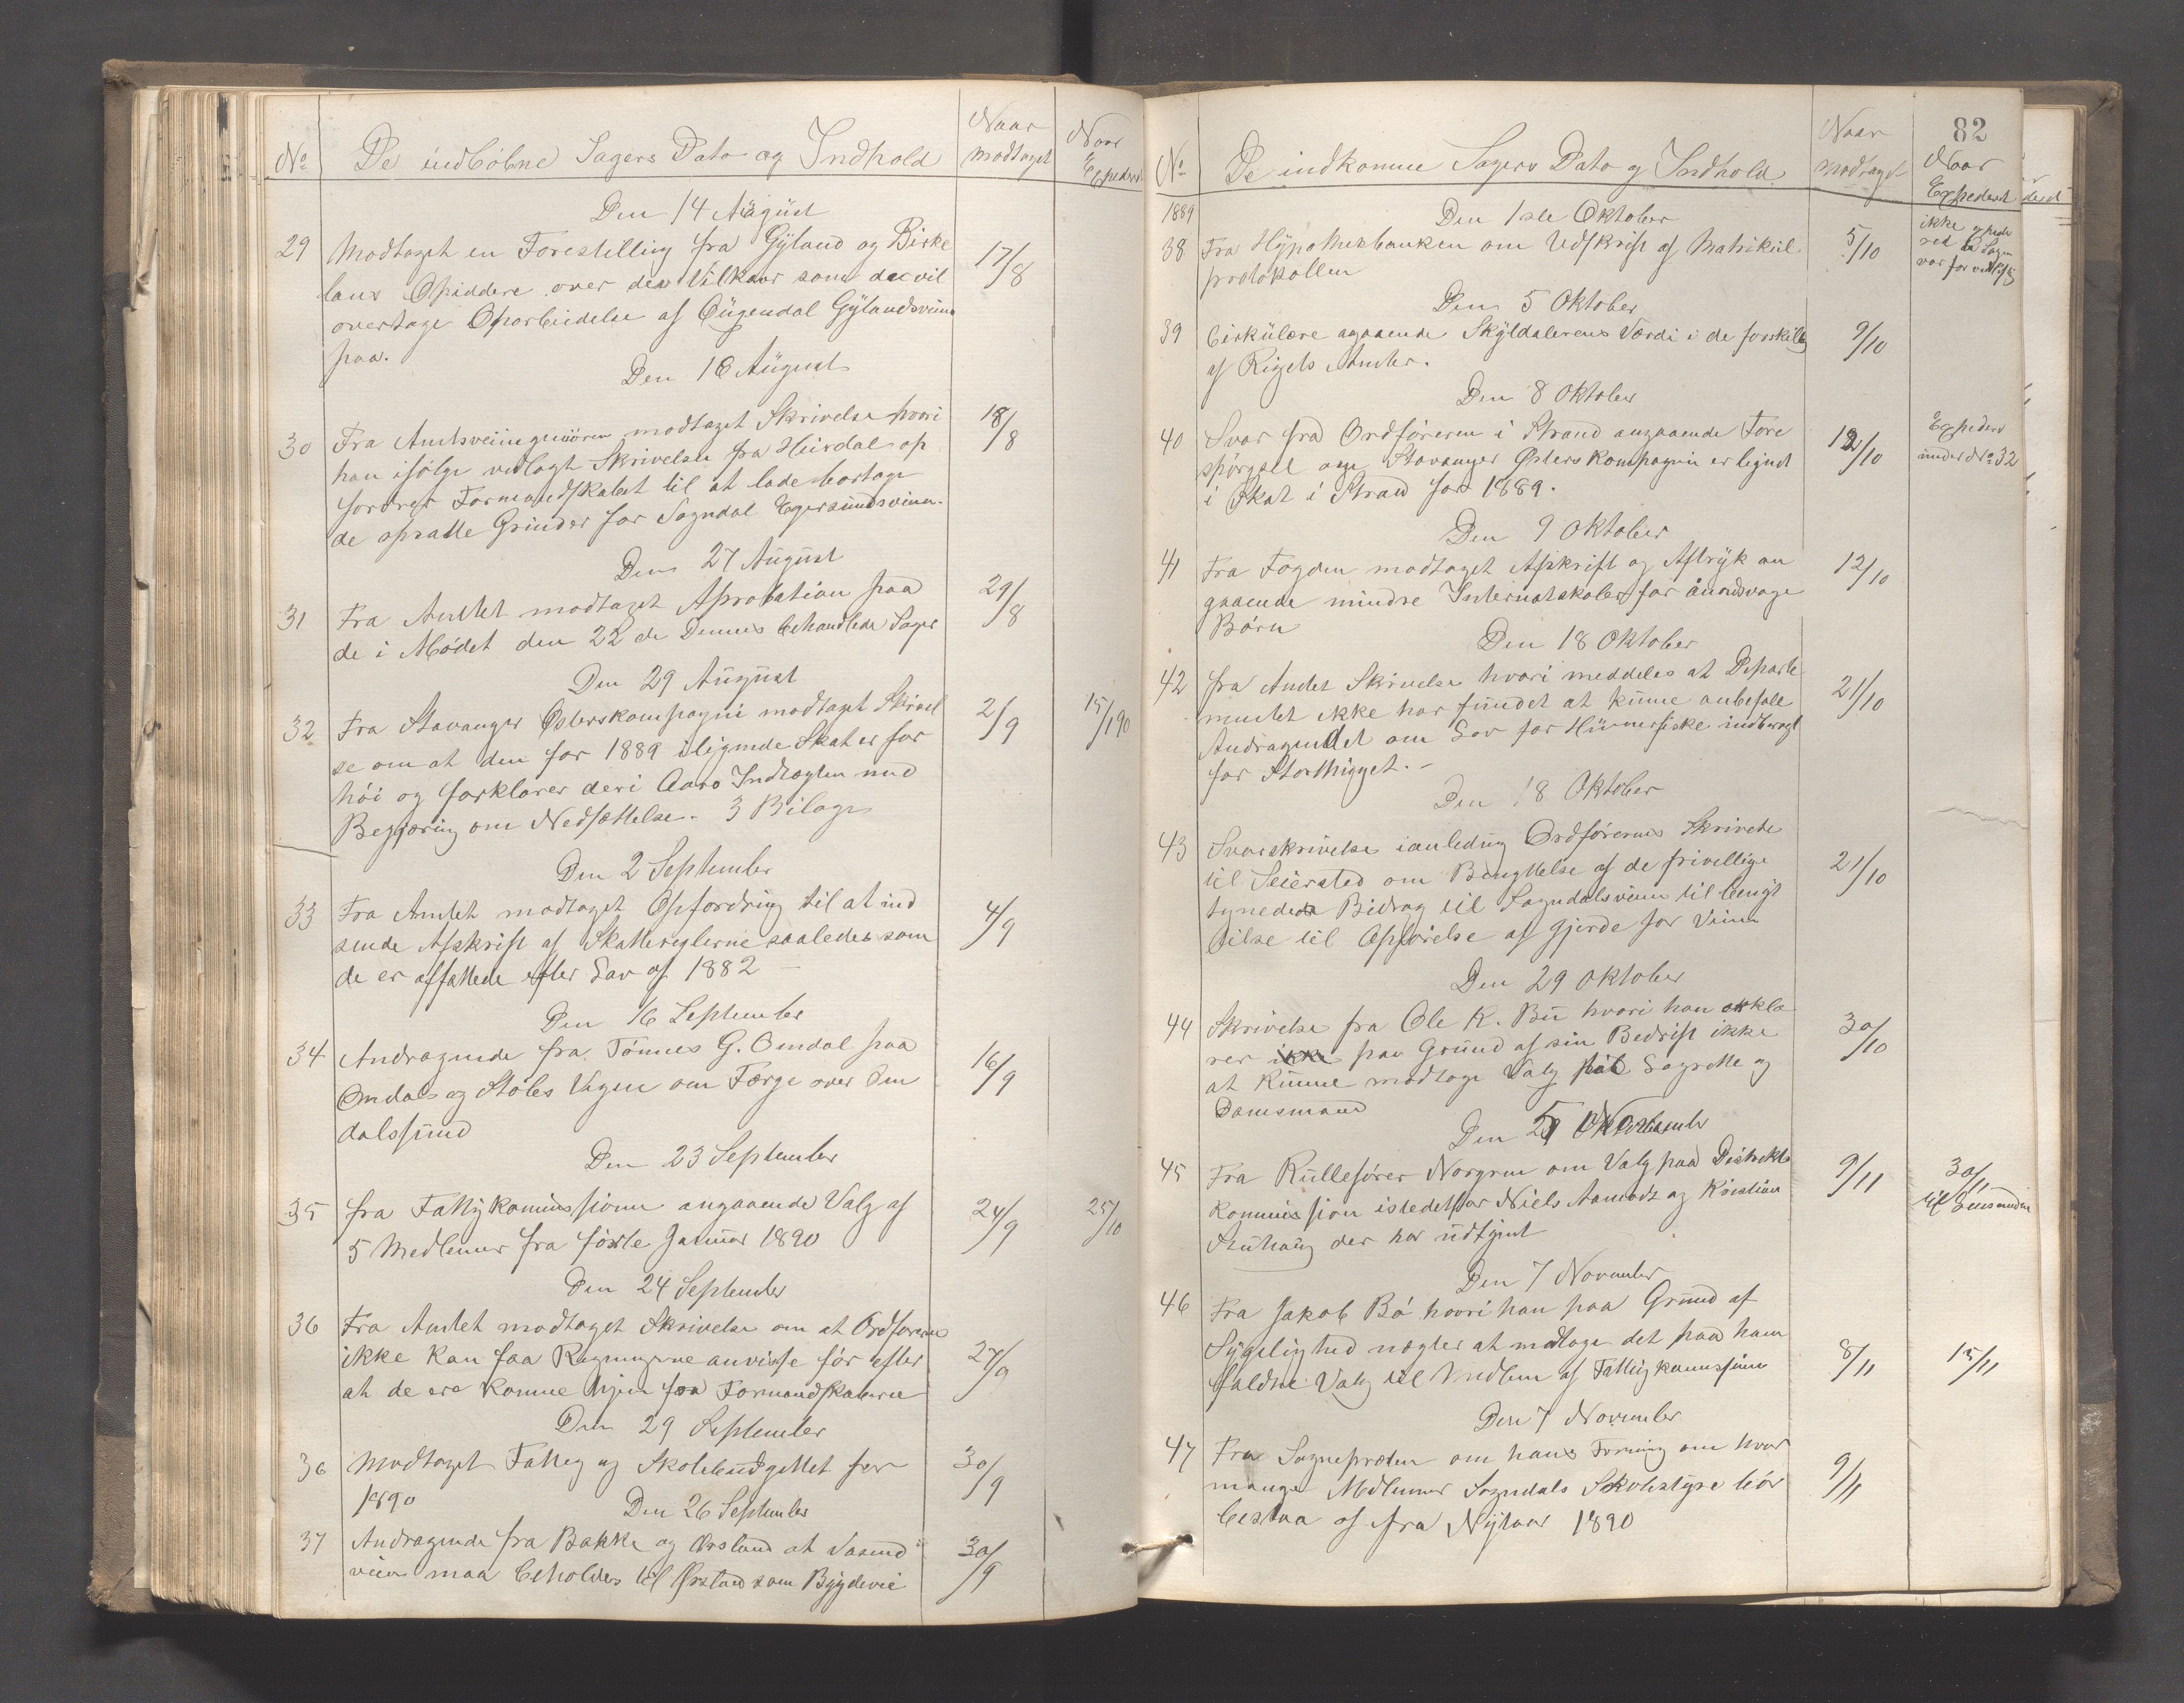 No De indløbne Sagers Dato og Indhold Naar modtaget Naar Expederet
Den 14 August
29 Modtaget en Forestilling fra Gyland og Birke 17/8
lans Opsiddere over den Vilkaar som de vil
overtage Oparbeidelse af Gylandsveien
paa.
Den 16 August
30 Fra Amtsveiingeniøren modtaget Skrivelse hvori 18/8
han ifølge vedlagt Skrivelse fra Heirdal op
fordrer Formandskabet til at lade borttage
de opsatte Grinder for Sogndal Egersundsveien.
Den 27 August
31 Fra Amtet modtaget Aprobation paa 29/8
de i Mødet den 22 de Dennes behandlede Sager
Den 29 August
32 Fra Stavanger Østerskompagni modtaget Skrivel 2/9 15/1 90
se om at den for 1889 ilignede Skat er for
høi og forklarer deri Aars Indtægten med
Begjæring om Nedsættelse. 3 Bilage
Den 2 September
33 Fra Amtet modtaget Opfordring til at ind 4/9
sende Afskrift af Skattereglerne saaledes som
de er affattede efter Lov af 1882 –
Den 16 September
34 Andragende fra Tønnes G. Omdal paa 16/9
Omdals og Støles Vegne om Færge over Om
dalssund
Den 23 September
35 fra Fattigkommissionen angaaende Valg af 24/9 25/10
5 Medlemer fra første Januar 1890
Den 24 September
36 Fra Amtet modtaget Skrivelse om at Ordføreren
ikke kan faa Regningerne anviste før efter 27/9
at de ere komne hjem fra Formandskaberne
Den 29 September
36 Modtaget Fattig og Skolebudgettet for 30/9
1890
Den 26 September
37 Andragende fra Bakke og Ørsland at 30/9
veien maa beholdes til Ørsland som Bygdevei
82
No De indkomne Sagers Dato og Indhold Naar modtaget Naar Expederet
1889 Den 1ste Oktober
38 Fra Hypothekbanken om Udskrift af Matrikül 5/10
protokollen
Den 5 Oktober
39 Cirkülære agaaende Skyldalerens Værdi i de forskillig 9/10
af Rigets Amter.
Den 8 Oktober
40 Svar fra Ordføreren i Strand angaaende Fore 12/10 Expederet
spørgsel om Stavanger Østers Kompagnie er lignet under No 32
i Skat i Strand for 1889.
Den 9 Oktober
41 Fra Fogden modtaget Afskrift og Aftryk an 12/10
gaaende mindre Internatskoler for åndsvage
Børn
Den 18 Oktober
42 fra Amtet Skrivelse hvori meddeles at Departe
mentet ikke har fundet at kunne anbefale 21/10
Andragendet om Lov for Hummerfiske indbragt
for Storthigget. –
Den 18 Oktober
43 Svarskrivelse ianledning Ordførerens Skrivelse
til Seiersted om Benyttelse af de frivellige 21/10
Bidrag til Sogndalsveien til benyt
telse til Opførelse af Gjerde for Veien
Den 29 Oktober
44 Skrivelse fra Ole K. Bu hvori han erklæ
rer ikke paa Grund af sin Bedrift ikke 30/10
at kunne modtage Valg til Lagrette og
Domsmand
Den 5 November
45 Fra Rullefører Norgren om Valg paa Districts 9/11 30/11
Kommission istedetfor Niels Aamodt og Kristian
der har udtjent
Den 7 November
46 Fra Jakob Bø hvori han paa Grund af
Sygelighed nægter at modtage det paa ham
faldne Valg til Medlem af Fattigkomissionen 8/11 15/11
Den 7 November
47 Fra Sognepræsten om hans Formening om hvor 9/11
mange Medlemer Sogndals Skolestyre bør
bestaa af fra Nytaar 1890